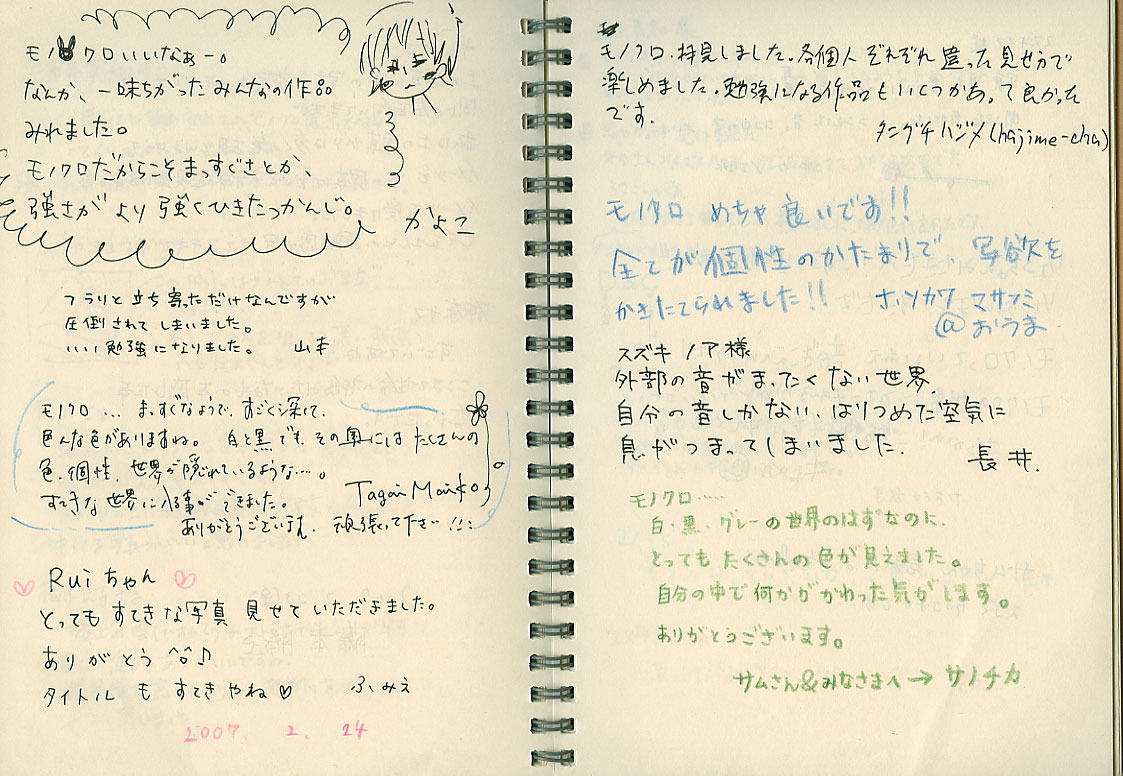 モノクロいいなぁー。
なんか、一味ちがったみんなの作品
みれました。
モノクロだからこそまっすぐさとか、
強さがより強くひきたつかんじ。
かよこ
フラリと立ち寄っただけなんですが
圧倒されてしまいました。
いい勉強になりました。 山本
モノクロ...まっすぐなようで、すごく深くて、
色んな色がありますね。 白と黒でも、その奥にはたくさんの
色、個性、世界が隠れているような...。
すてきな世界に入る事ができました。
ありがとうございます。頑張って下さい!!!
Rui ちゃん
とってもすてきな写真 見せていただきました。
ありがとう ^o^♪
タイトルもすてきやね♡ ふみえ
2007. 2. 24
モノクロ、拝見しました。各個人ぞれぞれ違った見せ方で
楽しめました。勉強になる作品もいくつかあって良かった
です。
タニグチハジメ(hajime-cha)
モノクロ めちゃ良いです!!
全てが個性のかたまりで、写欲を
かきたてられました!! ホソカワマサフミ
@おうま
スズキノア様
外部の音がまったくない世界
自分の音しかない、はりつめた空気に
息がつまってしまいました。
長井.
モノクロ.....
白・黒・グレーの世界のはずなのに、
とってもたくさんの色が見えました。
自分の中で何かがかわった気がします。
ありがとうございます。
サムさん&みなさまへ→サノチカ